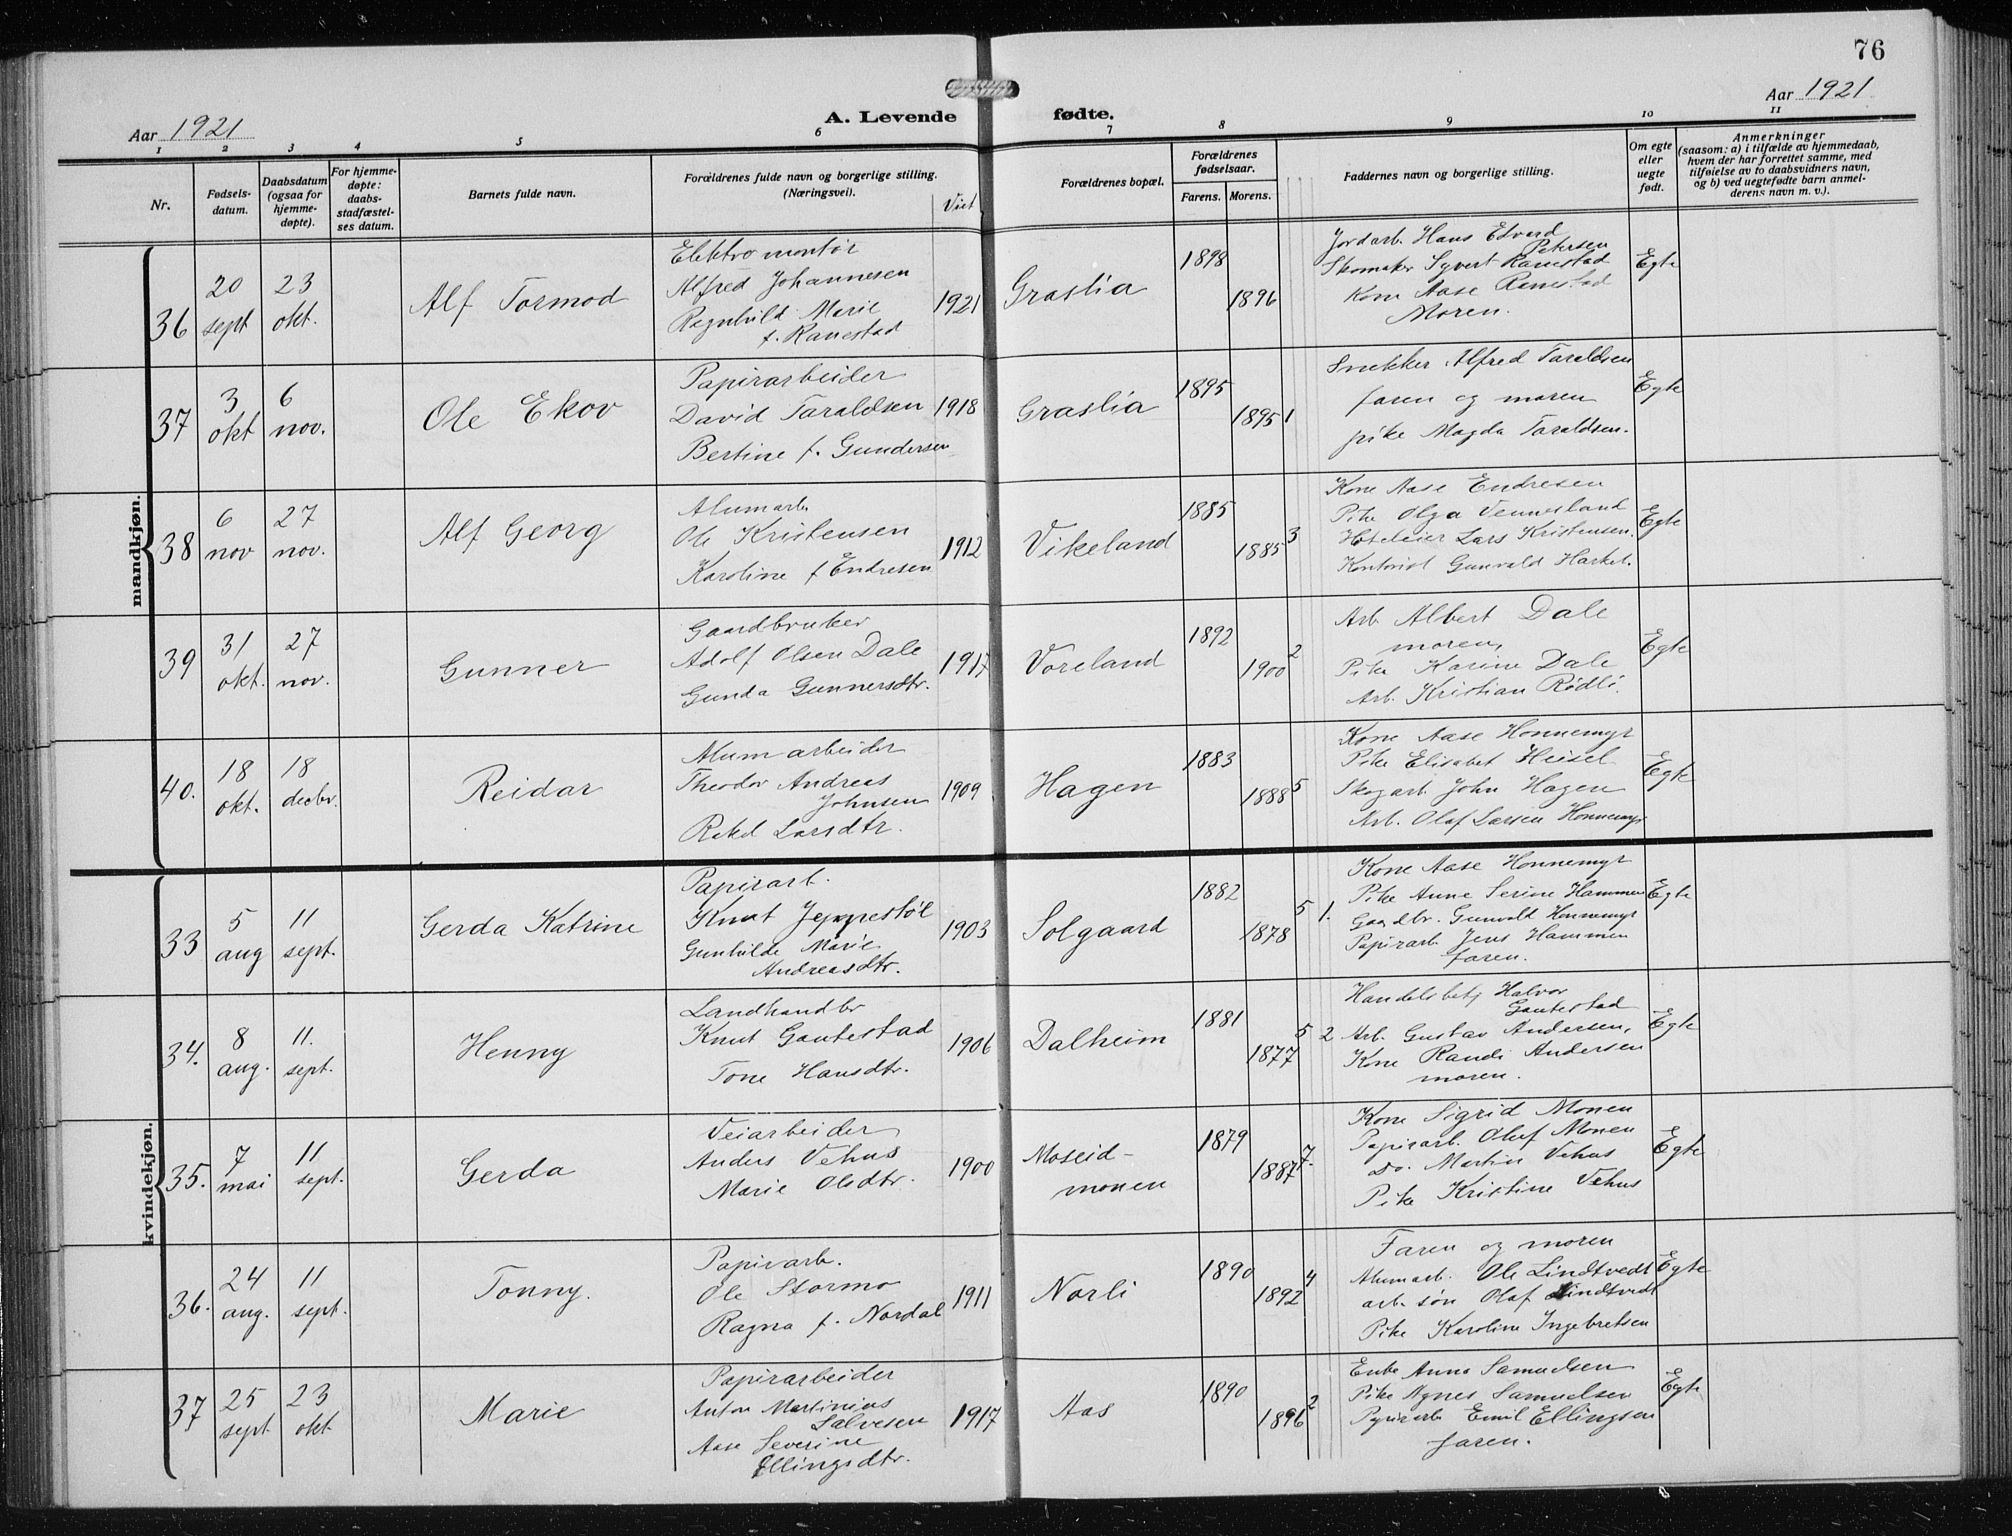 76
Aar 1921
A. Levende fødte.
Aar 1921
1 2 3 4 5 6 7 8 9 10 11
Nr.
Fødsels-
datum.
Daabsdatum
(ogsaa for
hjemme-
døpte).
For hjemme-
døpte:
daabs-
stadfæstel-
ses datum.
Barnets fulde navn.
Forældrenes fulde navn og borgerlige stilling.
(Næringsvei).
Viet
Forældrenes bopæl.
Forældrenes
fødselsaar.
Farens. Morens.
Faddernes navn og borgerlige stilling.
Om egte
eller
uegte
født.
Anmerkninger
(saasom: a) i tilfælde av hjemmedaab,
hvem der har forrettet samme, med
tilføielse av to daabsvidners navn,
og b) ved uegtefødte barn anmel-
derens navn m. v.).
mandkjøn.
36
20
sept
23
okt.
Alf Tormod
Elektromontør
Alfred Johannesen
Ragnhild Marie
f. Ranestad
1921
Graslia
1898
1896
Jordarb. Hans Edvard
Petersen
Skomaker Syvert Ranestad
Kone Aase Ranestad
Moren.
Egte
37
3
okt
6
nov.
Ole Ekov
Papirarbeider
David Taraldsen
Bertine f. Gundersen
1918
Graslia
1895
1895
1
Snekker Alfred Taraldsen
faren og moren
pike Magda Taraldsen.
Egte
38
6
nov
27
nov.
Alf Georg
Alumarb
Ole Kristensen
Karoline f Endresen
1912
Vikeland
1885
1885
3
Kone Aase Endresen
Pike Olga Vennesland
Hoteleier Lars Kristensen.
Kontorist Gunvald Harket.
Egte
39
31
okt.
27
nov.
Gunner
Gaardbruker
Adolf Olsen Dale
Gunda Gunnersdtr.
1917
Voreland
1892
1900
2
Arb Albert Dale
moren,
Pike Karine Dale
Arb. Kristian Rødli.
Egte
40.
18
okt.
18
decbr.
Reidar
Alumarbeider
Theodor Andreas
Johnsen
Rakel Larsdtr.
1909
Hagen
1883
1888
5
Kone Aase Honnemyr
Pike Elisabet Heisel
Skogarb. John Hagen
Arb. Olaf Larsen Honnemyr
Egte
kvindekjøn.
33
5
aug
11
sept.
Gerda Katrine
Papirarb.
Knut Jeppestøl
Gunhilde Marie
Andreasdtr.
1903
Solgaard
1882
1878
5 1.
Kone Aase Honnemyr
Pike Anne Serine Hammen
Gaardbr. Gunvald Honnemyr
Papirarb Jens Hammen
faren.
Egte
34.
8
aug.
11.
sept.
Henny
Landhandbr
Knut Gautestad
Tone Hansdtr.
1906
Dalheim
1881
1877
5 2
Handelsbetj Halvor
Gautestad
Arb. Gustav Andersen,
Kone Randi Andersen
moren.
Egte
35.
7
mai
11
sept.
Gerda
Veiarbeider
Anders Vehus
Marie Olsdtr.
1900
Moseid-
monen
1879
1887
7.
Kone Sigrid Monen
Papirarb. Oluf Monen
Do. Martin Vehus
Pike Kristine Vehus
Egte
36.
24
aug.
11
sept.
Tonny.
Papirarb.
Ole Stormo
Ragna f. Nordal
1911
Norli
1890
1892
4
Faren og moren
Alumarb. Ole Lindtvedt
arb. søn Olaf Lindtvedt
Pike Karoline Ingebretsen
Egte
37
25
sept
23
okt
Marie
Papirarbeider
Anton Martinius
Salvesen
Aase Severine
Ellingsdtr.
1917
Aas
1890
1896
2
Enke Anna Samuelsen
Pike Agnes Samuelsen
Papirarb Emil Ellingsen
faren.
Egte